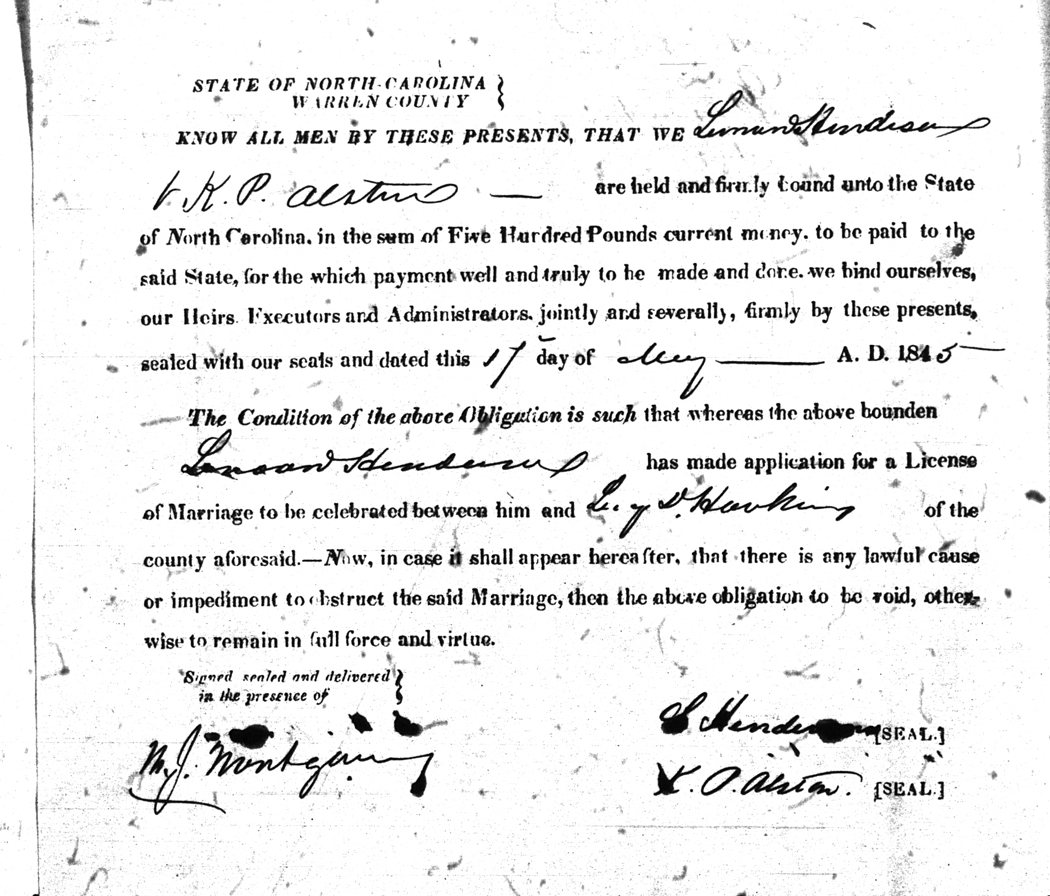 STATE OF NORTH-CAROLINA
WARREN COUNTY
KNOW ALL MEN BY THESE PRESENTS, THAT WE Henderson
& K. P. Alston — are held and firmly bound unto the State
of North Carolina, in the sum of Five Hundred Pounds current money, to be paid to the
said State, for the which payment well and truly to be made and done, we bind ourselves,
our Heirs Executors and Administrators, jointly and severally, firmly by these presents,
sealed with our seals and dated this 17 day of May — A. D. 1845
The Condition of the above Obligation is such that whereas the above bounden
Henderson has made application for a License
of Marriage to be celebrated between him and D. Hawkins of the
county aforesaid.—Now, in case it shall appear hereafter, that there is any lawful cause
or impediment to obstruct the said Marriage, then the above obligation to be void, other-
wise to remain in full force and virtue.
Signed sealed and delivered
in the presence of
Montgomery
Henderson [SEAL.]
K. P. Alston. [SEAL.]